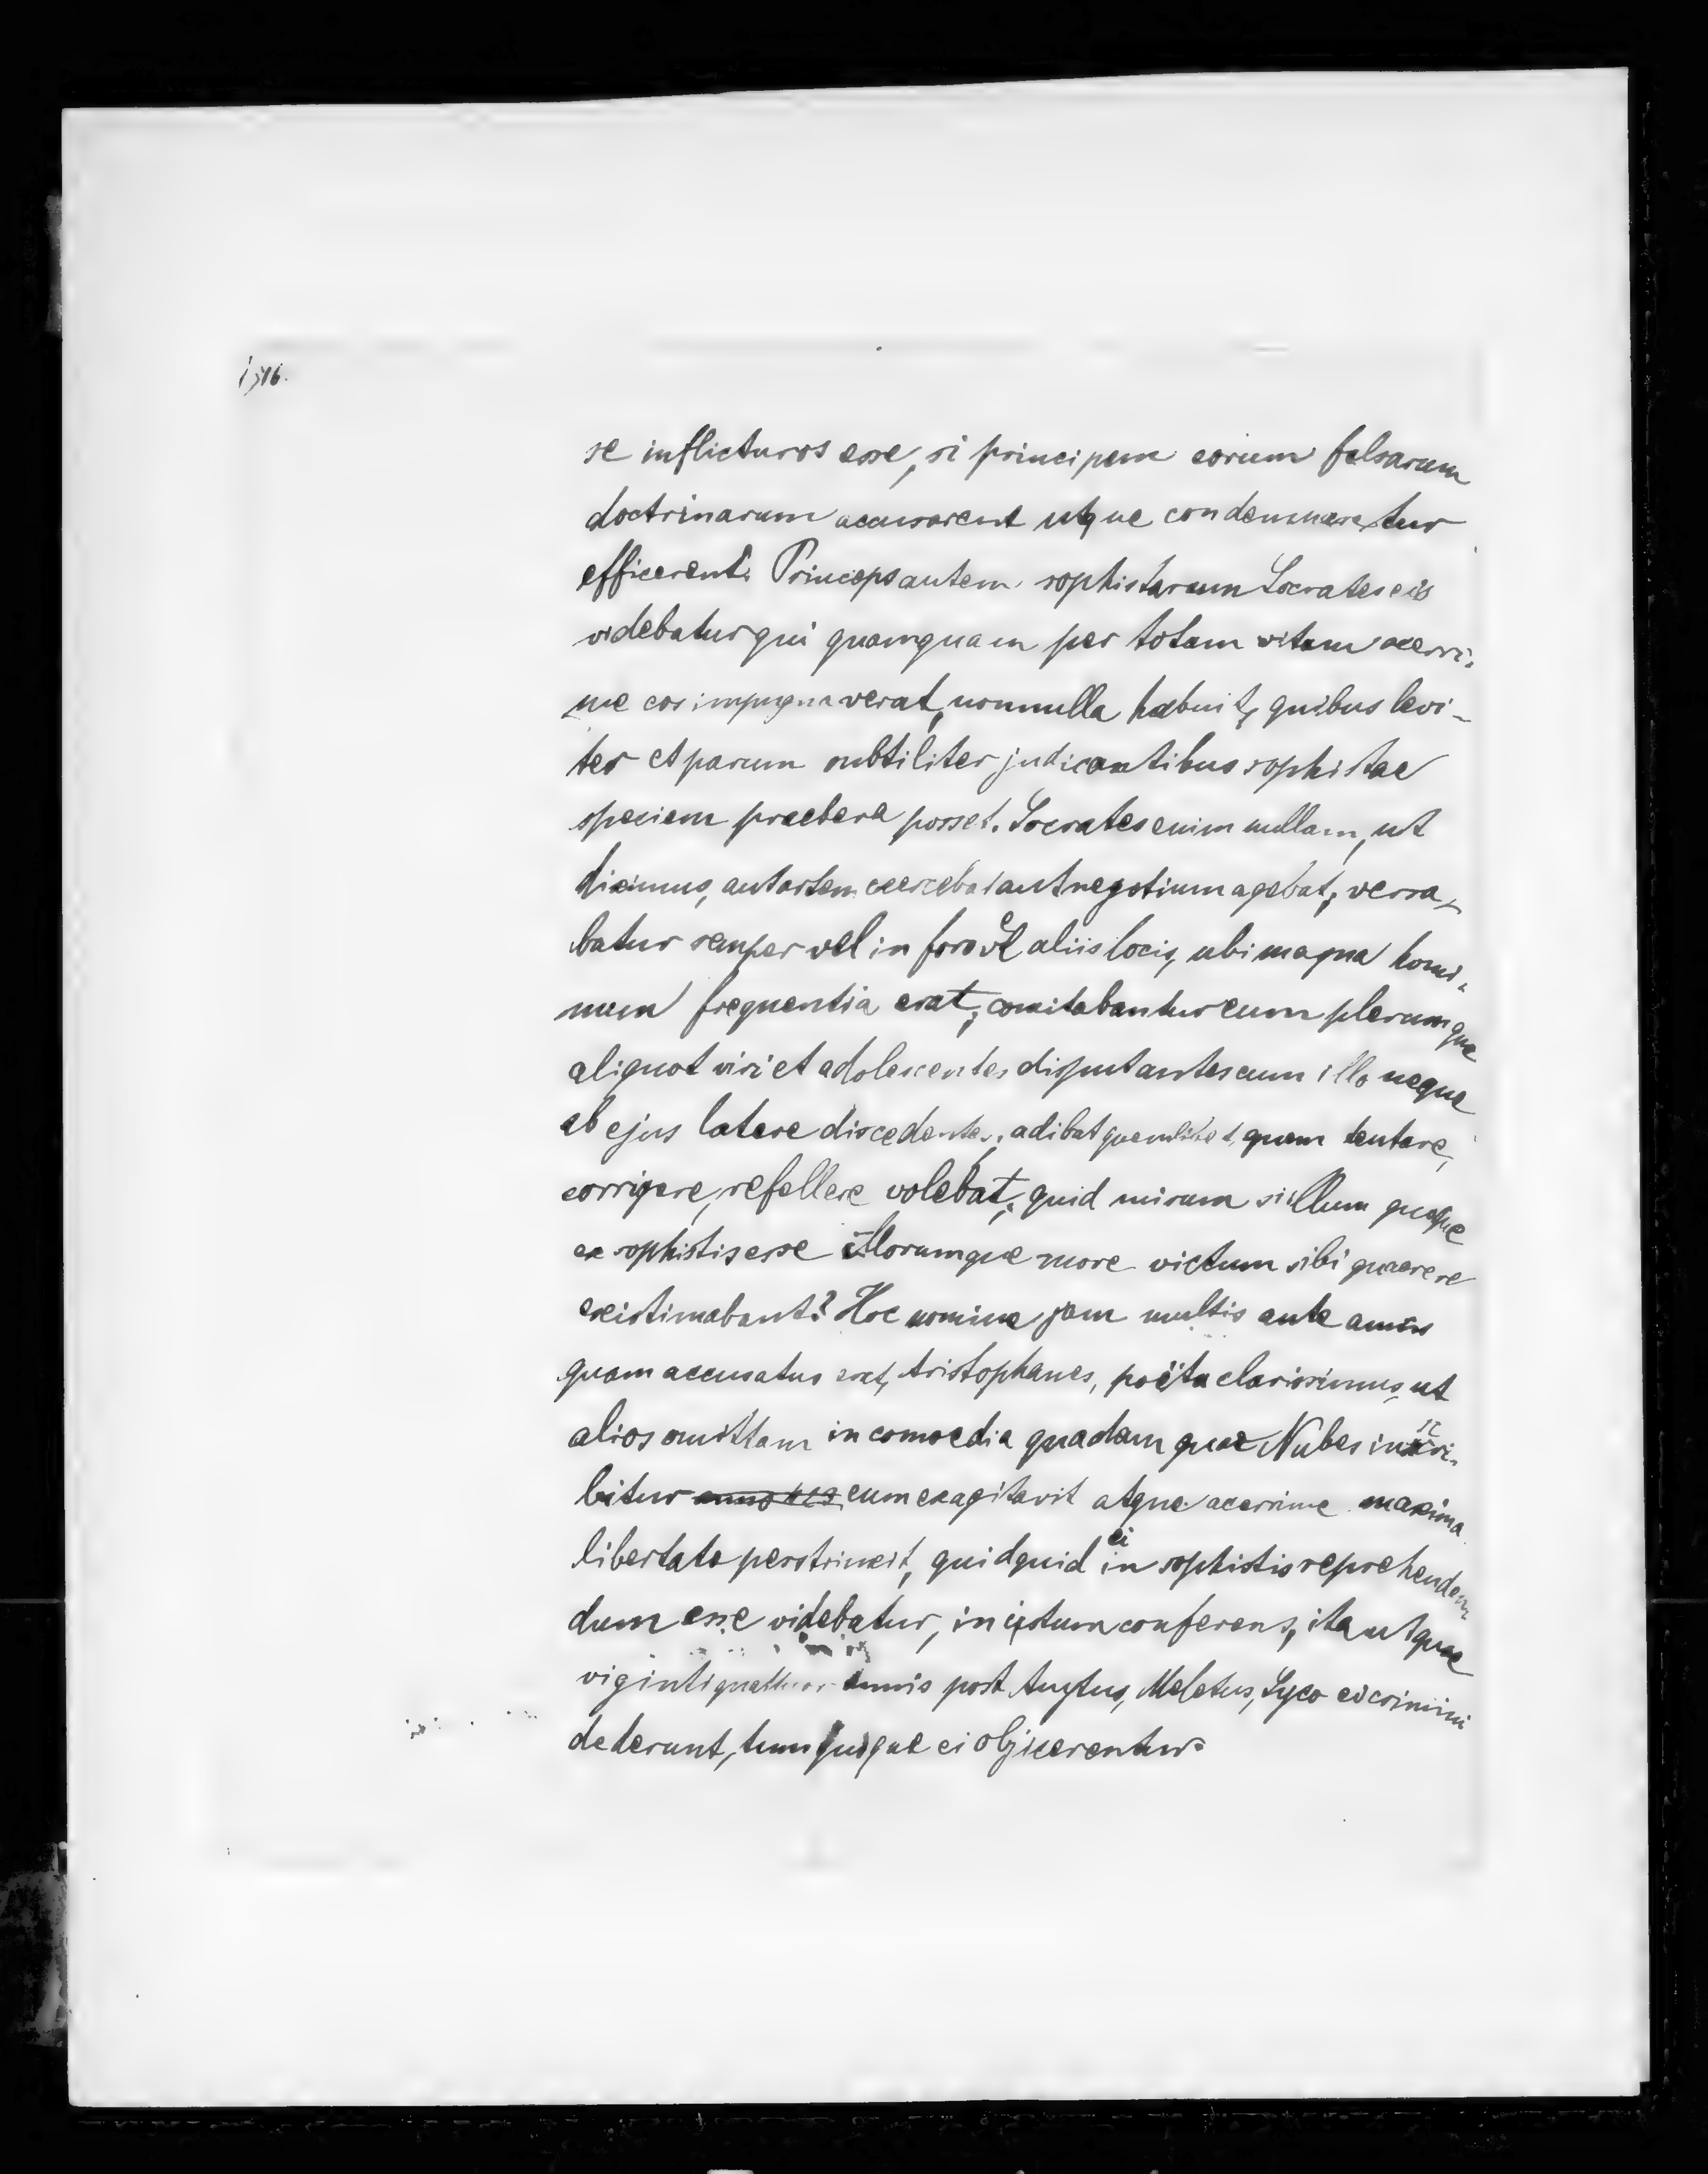 se inflicturos esse, si principem eorum falsarum
doctrinarum accusarent utque condemnaretur
efficerent. Princeps autem sophistarum Socrates eis
videbatur qui quamquam per totam vitam acerri-
me eos impugnaverat, nonnulla habuit, quibus levi-
ter et parum subtiliter judicantibus sophistae
speciem praebere posset. Socrates enim nullam, ut
diximus, aut artem exercebat aut negotium agebat, versa-
batur semper vel in foro vel aliis locis, ubi magna homi-
num frequentia erat, comitabantur eum plerumque
aliquot viri et adolescentes disputantes cum illo neque
ab ejus latere discedentes, adibat quemlibet, quem tentare,
corrigere, refellere volebat; quid mirum si illum quoque
ex sophistis esse illorumque more victum sibi quaerere
existimabant? Hoc nomine jam multis ante annis
quam accusatus erat, Aristophanes, poëta clarissimus, ut
alios omittam in comoedia quadam quae Nubes inscri-
bitur anno 423 eum exagitavit atque acerrime maxima
libertate perstrinxit, quidquid ei in sophistis reprehenden-
dum esse videbatur, in istum conferens, ita ut quae
viginti quattuor annis post Anytus, Meletus, Lyco ei crimini
dederunt, tum quoque ei objicerentur.